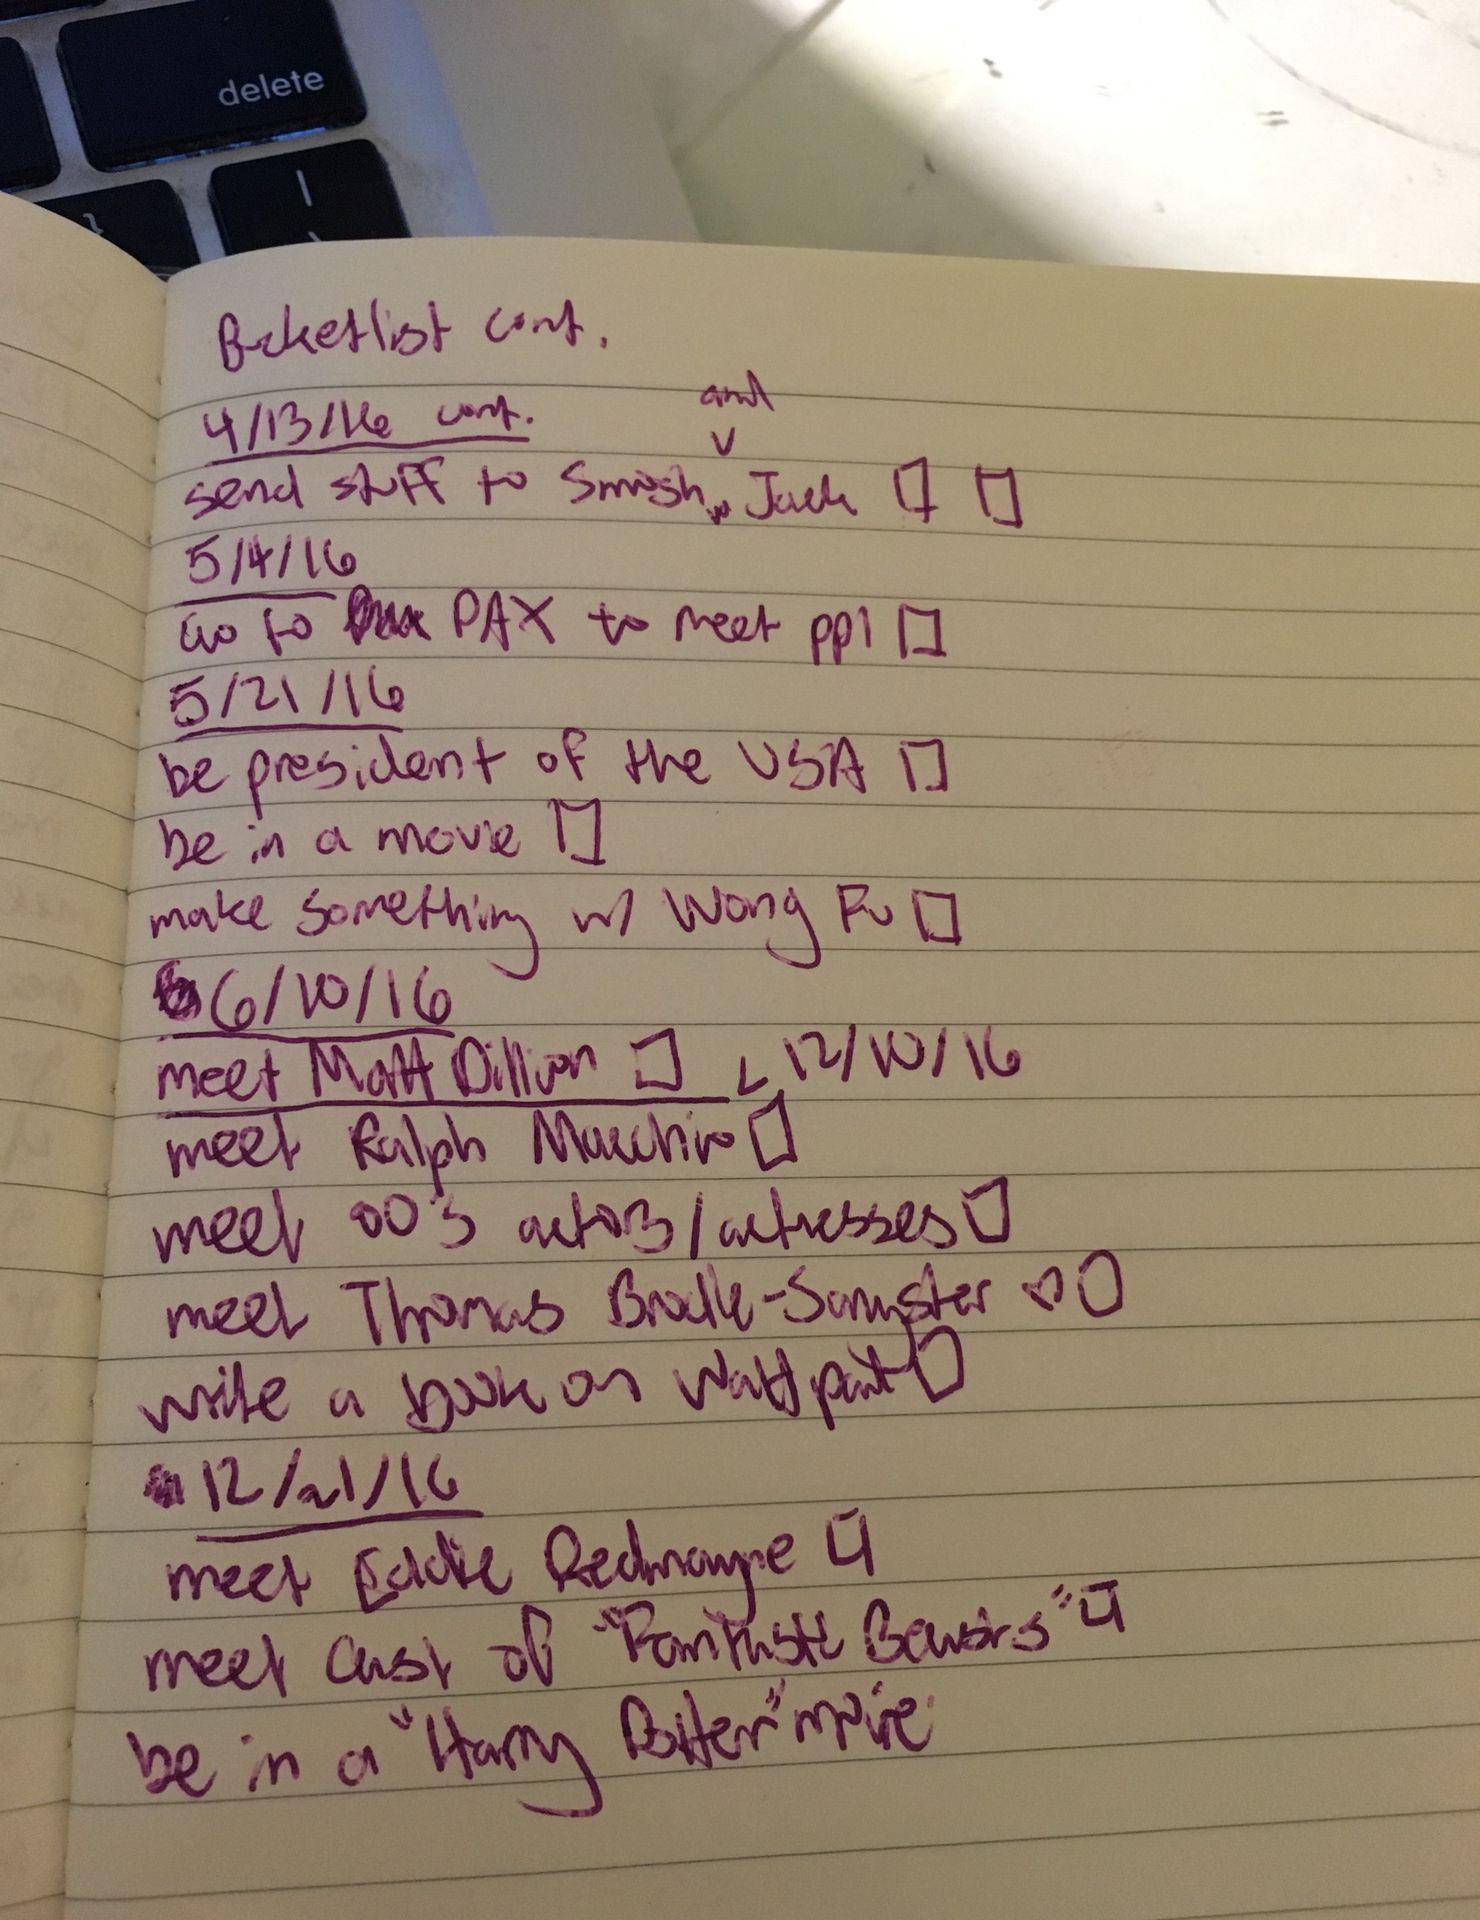 delete
}
|
\
Bucketlist cont.
4/13/16 cont.
and
send stuff to Smosh Jack
5/4/16
Go to PAX to meet ppl
5/21/16
be president of the USA
be in a movie
make something w/ Wong Fu
6/10/16
meet Matt Dillion
12/10/16
meet Ralph Macchio
meet 00's actors/actresses
meet Thomas Brodie-Sangster ♡
write a book on Wattpad
12/21/16
meet Eddie Redmayne
meet cast of "Fantastic Beasts"
be in a "Harry Potter" movie